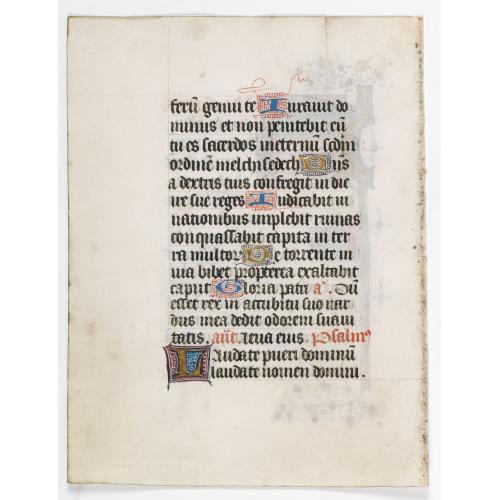 ferū genui te Iurauit do
minus et non penitebit eū
tu es sacerdos ineternū scd̄m
ordinē melchisedech Dn̄s
a dextris tuis confregit in die
ire sue reges Iudicabit in
nationibus implebit ruinas
conquassabit capita in ter
ra multor De torrente in
uia bibet propterea exaltabit
caput Gloria patri a. Dū
esset rex in accubitu suo nar
dus mea dedit odorem suaui
tatis. an̄. Leua eius. Psalmꝰ
Laudate pueri dominū
laudate nomen domini.